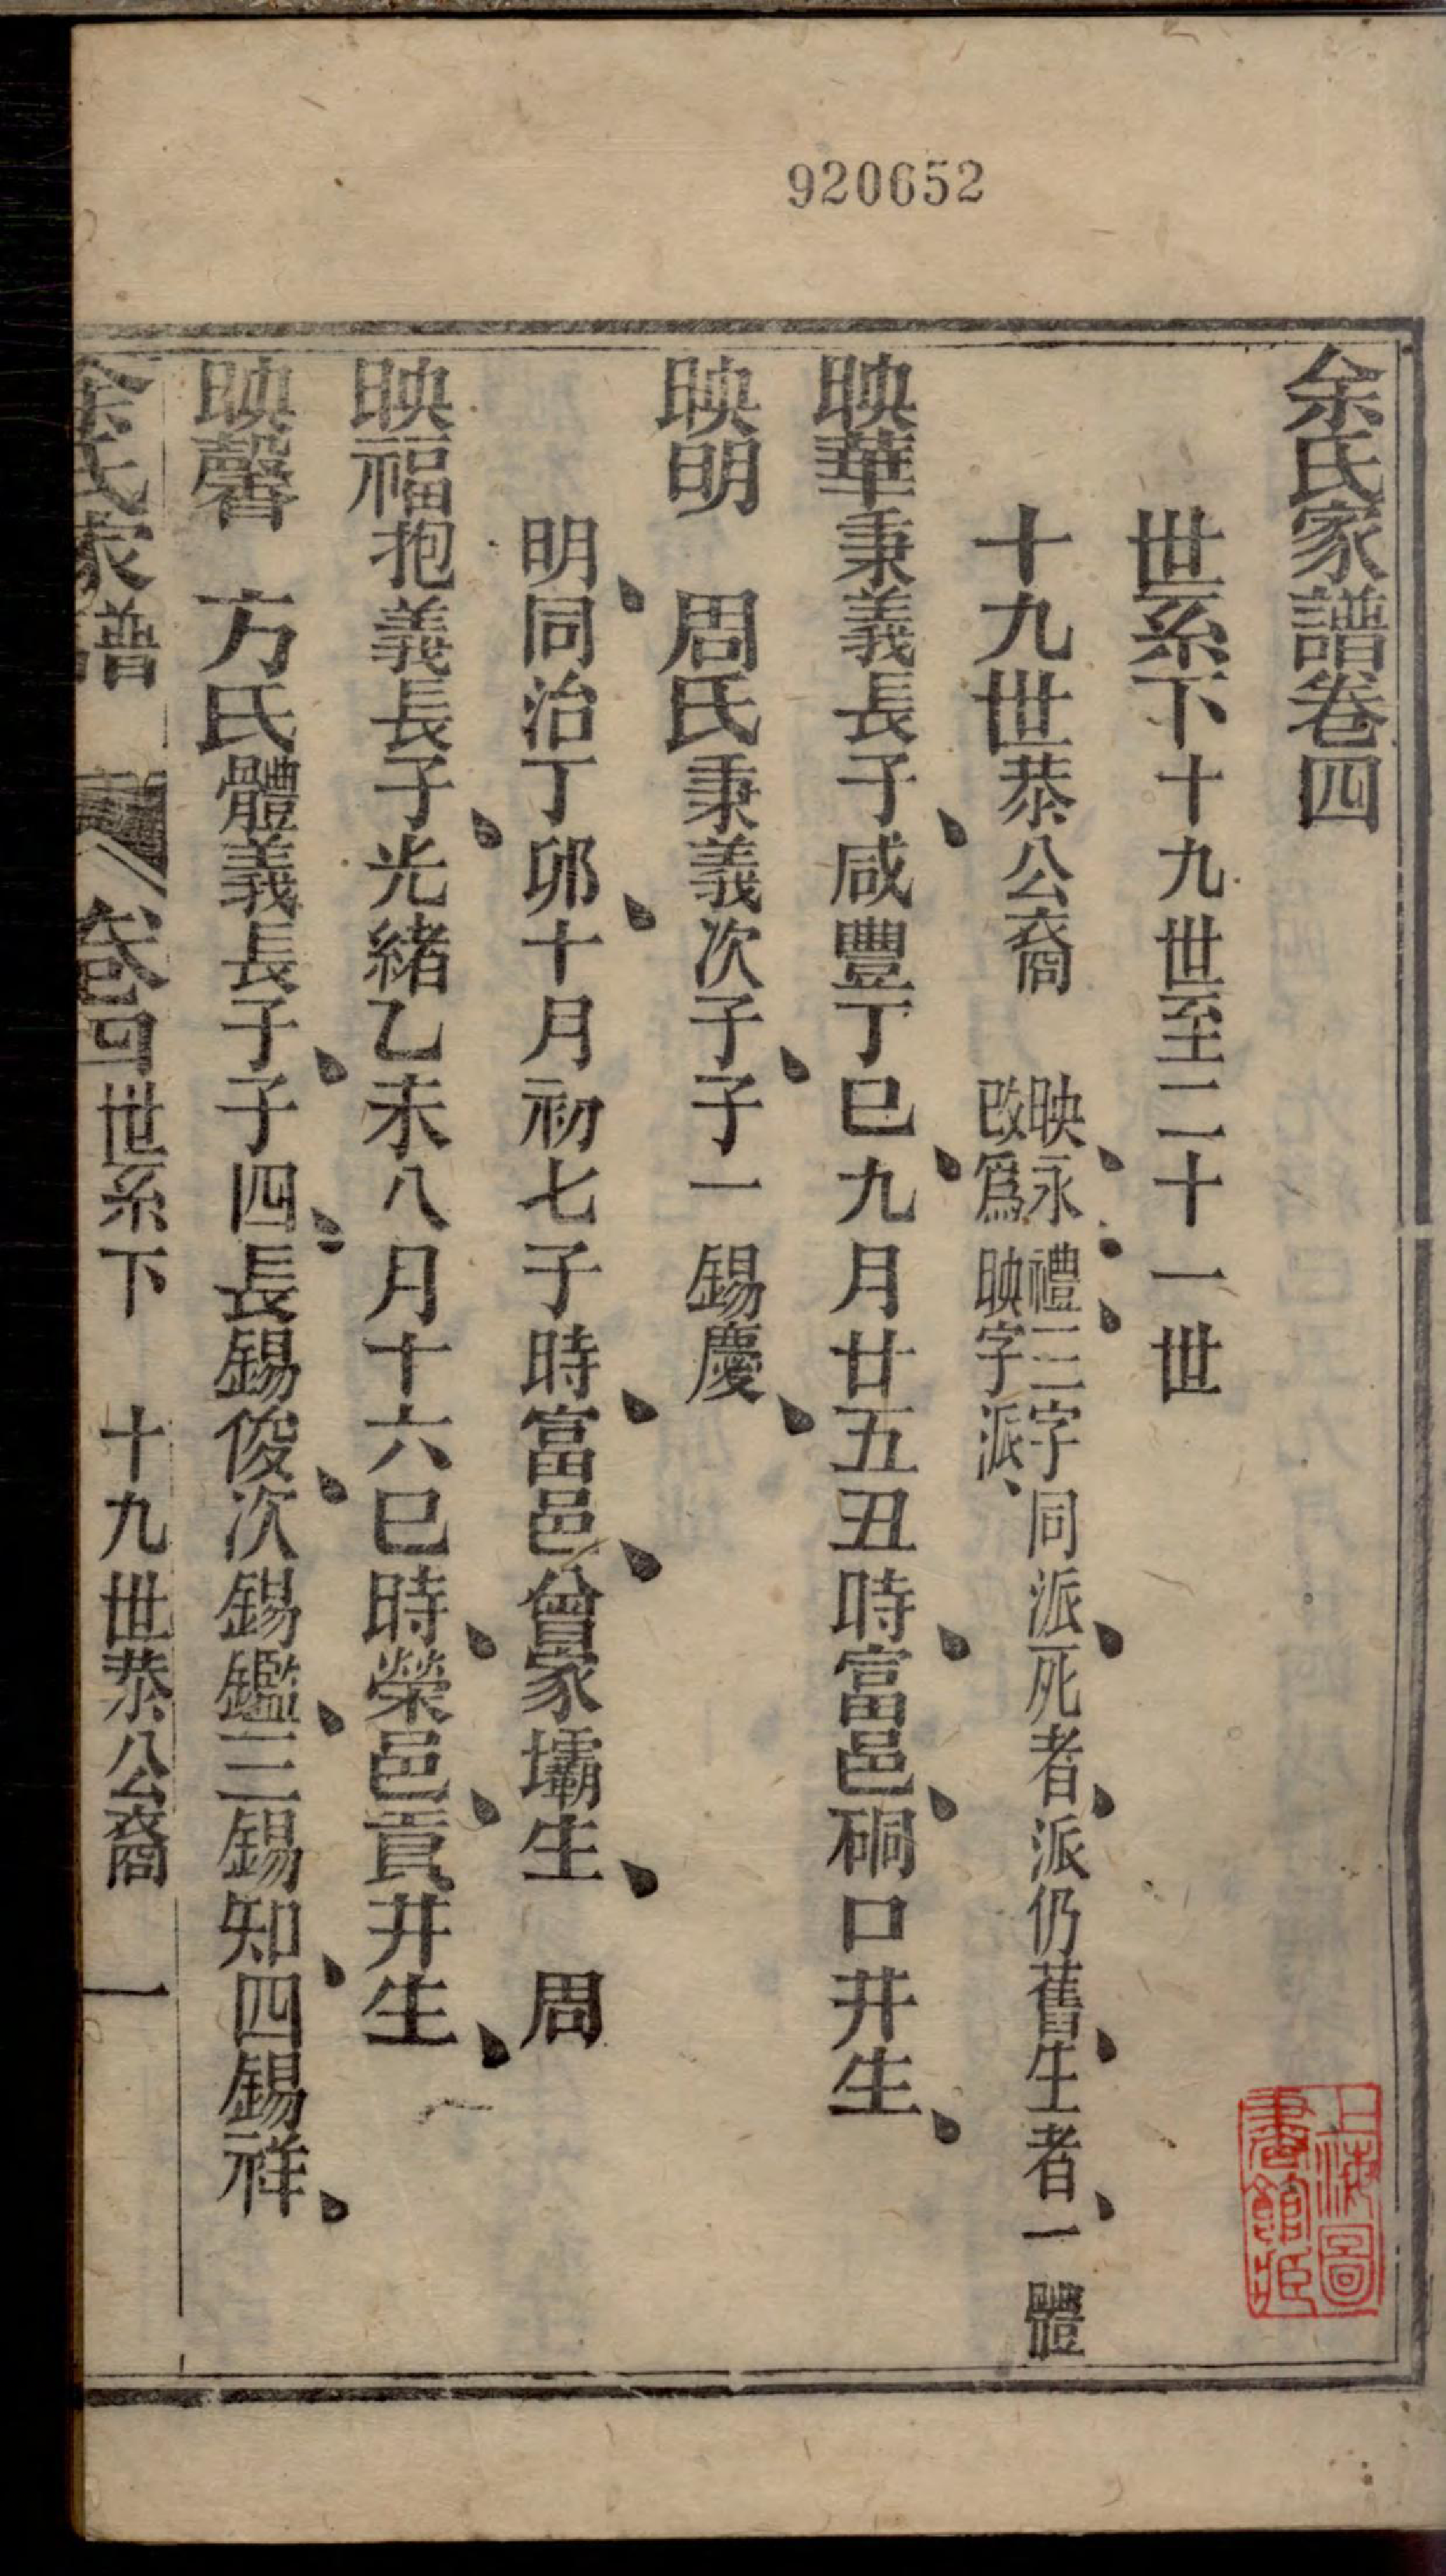 920652
余氏家譜卷四
世系下十九世至二十一世
十九世恭公裔 映永禮三字同派死者派仍舊生者一體
改爲映字派
映華秉義長子咸豐丁巳九月廿五丑時富邑硐口井生
映明 周氏秉義次子子一錫慶
明同治丁卯十月初七子時富邑曾家壩生 周
映福抱義長子光緒乙未八月十六巳時榮邑貢井生
映馨 方氏體義長子子四長錫俊次錫鑑三錫知四錫祥
余氏家譜 卷四世系下 十九世恭公裔 一
上海圖書館藏